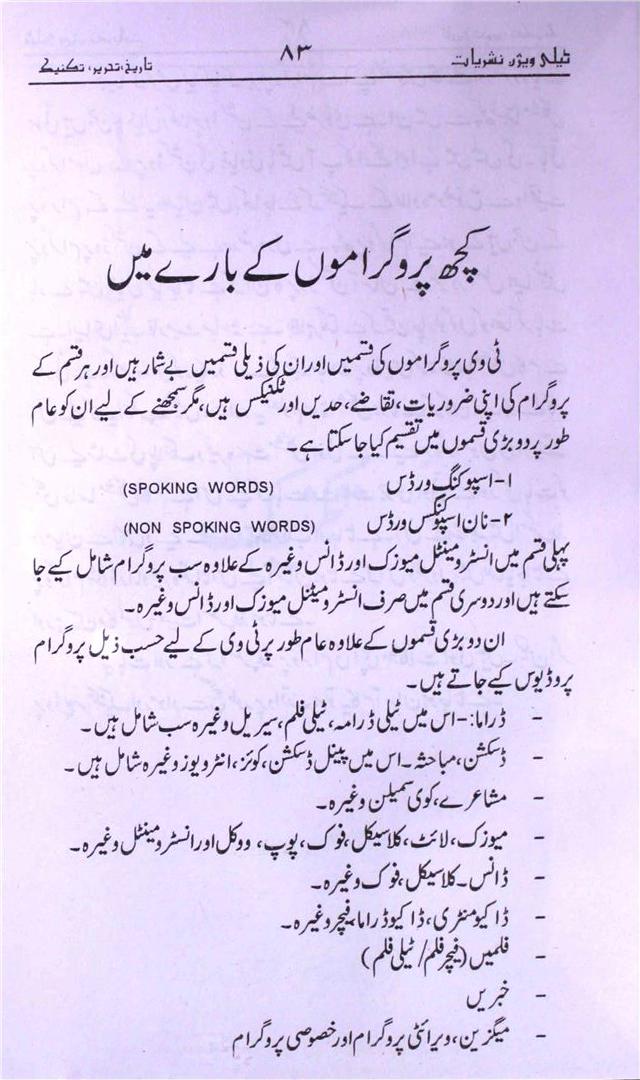 ٹیلی ویژن نشریات ۸۳ تاریخ، تحریر، تکنیک
کچھ پروگراموں کے بارے میں
ٹی وی پروگراموں کی قسمیں اور ان کی ذیلی قسمیں بے شمار ہیں اور ہر قسم کے
پروگرام کی اپنی ضروریات، تقاضے، حدیں اور ٹکنیکس ہیں، مگر سمجھنے کے لیے ان کو عام
طور پر دو بڑی قسموں میں تقسیم کیا جا سکتا ہے۔
۱- اسپوکنگ ورڈس (SPOKING WORDS)
۲- نان اسپوکنگس ورڈس (NON SPOKING WORDS)
پہلی قسم میں انسٹرومینٹل میوزک اور ڈانس وغیرہ کے علاوہ سب پروگرام شامل کیے جا
سکتے ہیں اور دوسری قسم میں صرف انسٹرومینٹل میوزک اور ڈانس وغیرہ۔
ان دو بڑی قسموں کے علاوہ عام طور پر ٹی وی کے لیے حسب ذیل پروگرام
پروڈیوس کیے جاتے ہیں۔
- ڈراما:- اس میں ٹیلی ڈرامہ، ٹیلی فلم، سیریل وغیرہ سب شامل ہیں۔
- ڈسکشن، مباحثہ۔ اس میں پینل ڈسکشن، کوئز، انٹرویوز وغیرہ شامل ہیں۔
- مشاعرے، کوی سمیلن وغیرہ۔
- میوزک، لائٹ، کلاسیکل، فوک، پوپ، ووکل اور انسٹرومینٹل وغیرہ۔
- ڈانس۔ کلاسیکل، فوک وغیرہ۔
- ڈاکیومنٹری، ڈاکیوڈراما، فیچر وغیرہ۔
- فلمیں (فیچر فلم/ ٹیلی فلم)
- خبریں
- میگزین، ویرائٹی پروگرام اور خصوصی پروگرام